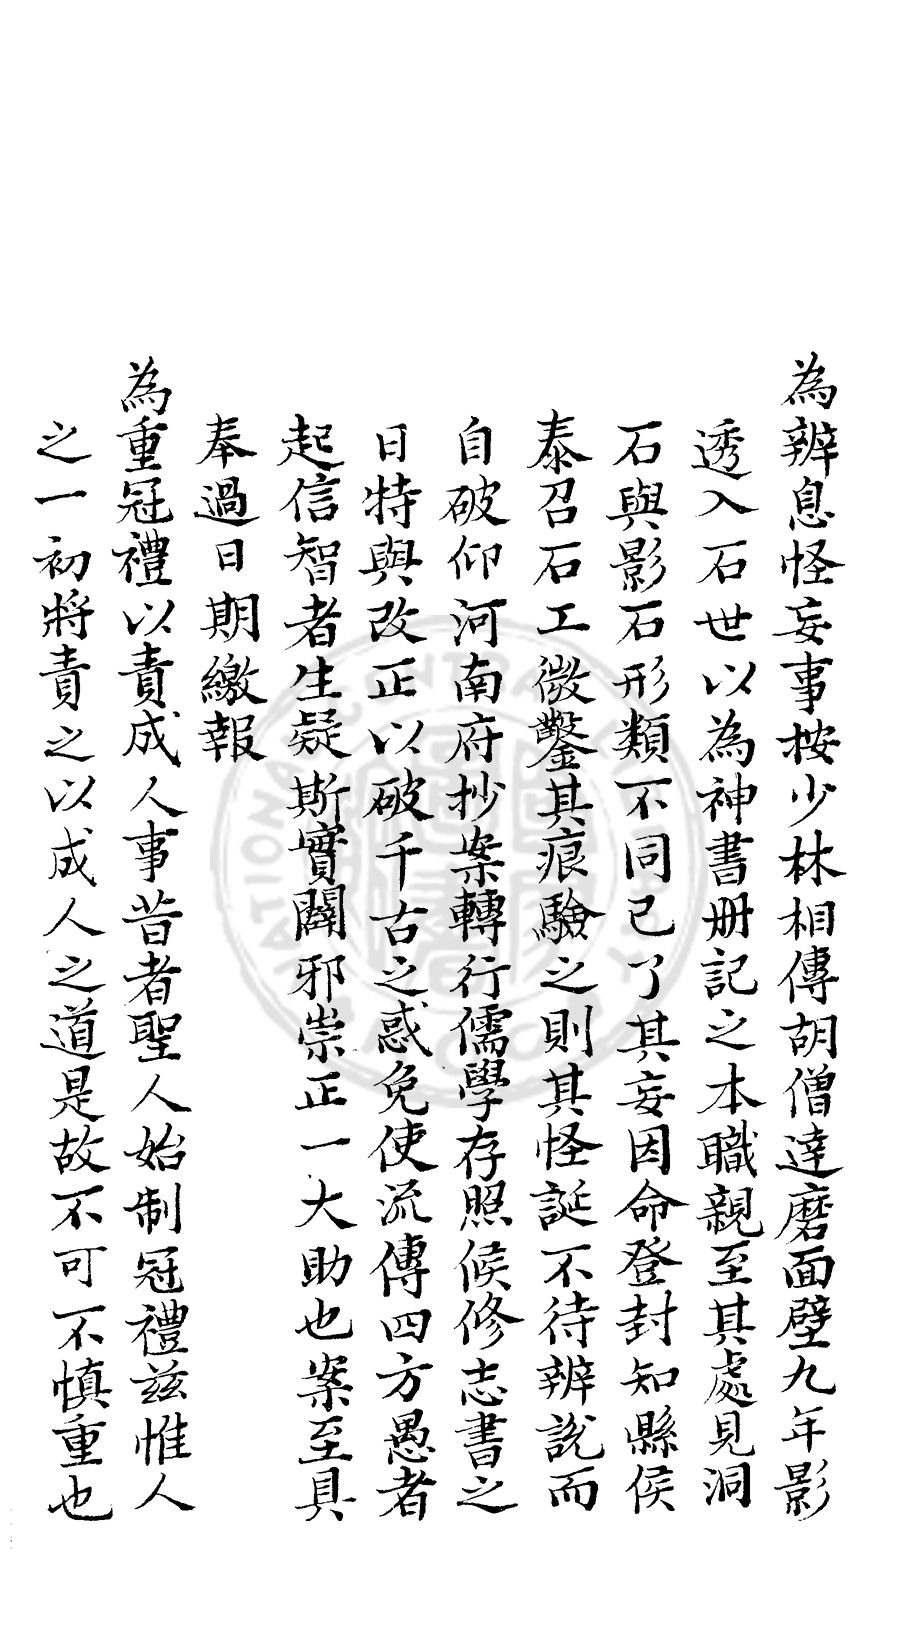 為辨息怪妄事按少林相傳胡僧達磨面壁九年影
透入石世以為神書册記之本職親至其處見洞
石與影石形類不同已了其妄因命登封知縣侯
泰召石工微鑿其痕驗之則其怪誕不待辨說而
自破仰河南府抄案轉行儒學存照候修志書之
日特與改正以破千古之惑免使流傳四方愚者
起信智者生疑斯實闢邪崇正一大助也案至具
奉過日期繳報
為重冠禮以責成人事昔者聖人始制冠禮兹惟人
之一初將責之以成人之道是故不可不慎重也